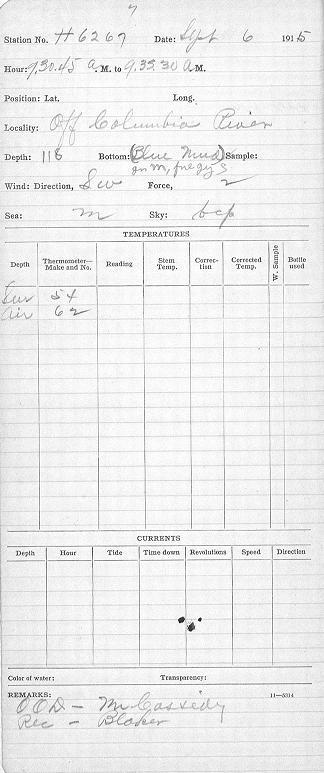 7
Station No. H6267 Date: Sept 6 1915
Hour: 9,30.45 a.M. to 9.33.30 A.M.
Position: Lat. Long.
Locality: Off Columbia River
Depth: 118 Bottom: (Blue Mud) Sample:
gn M, fne gy S
Wind: Direction, SW Force, 2
Sea: m Sky: bcp
TEMPERATURES
Depth Thermometer—Make and No. Reading Stem Temp. Correction Corrected Temp. W. Sample Bottle used
Sur 54
air 62
CURRENTS
Depth Hour Tide Time down Revolutions Speed Direction
Color of water: Transparency:
REMARKS: 11—5314
OOD - McCassidy
Rec - Blaker